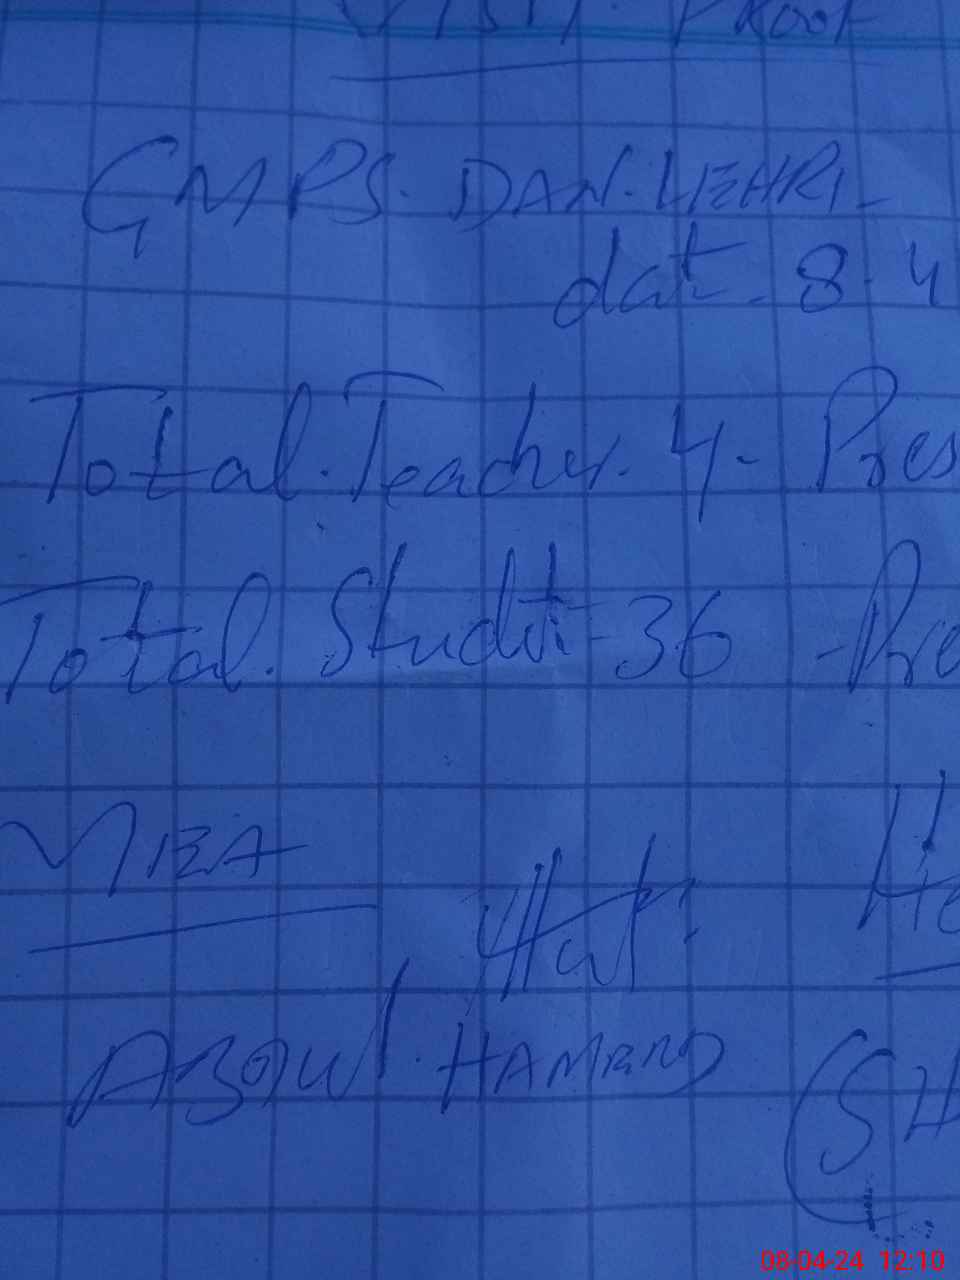 VISIT. PROOF
GMPS. DAN. LEHRI-
dat. 8.4
Total. Teacher. 4- Pres
Total. Studt-36 -Pre
MEA
He
ABDUL. HAMEED
(SH
08-04-24 12:10